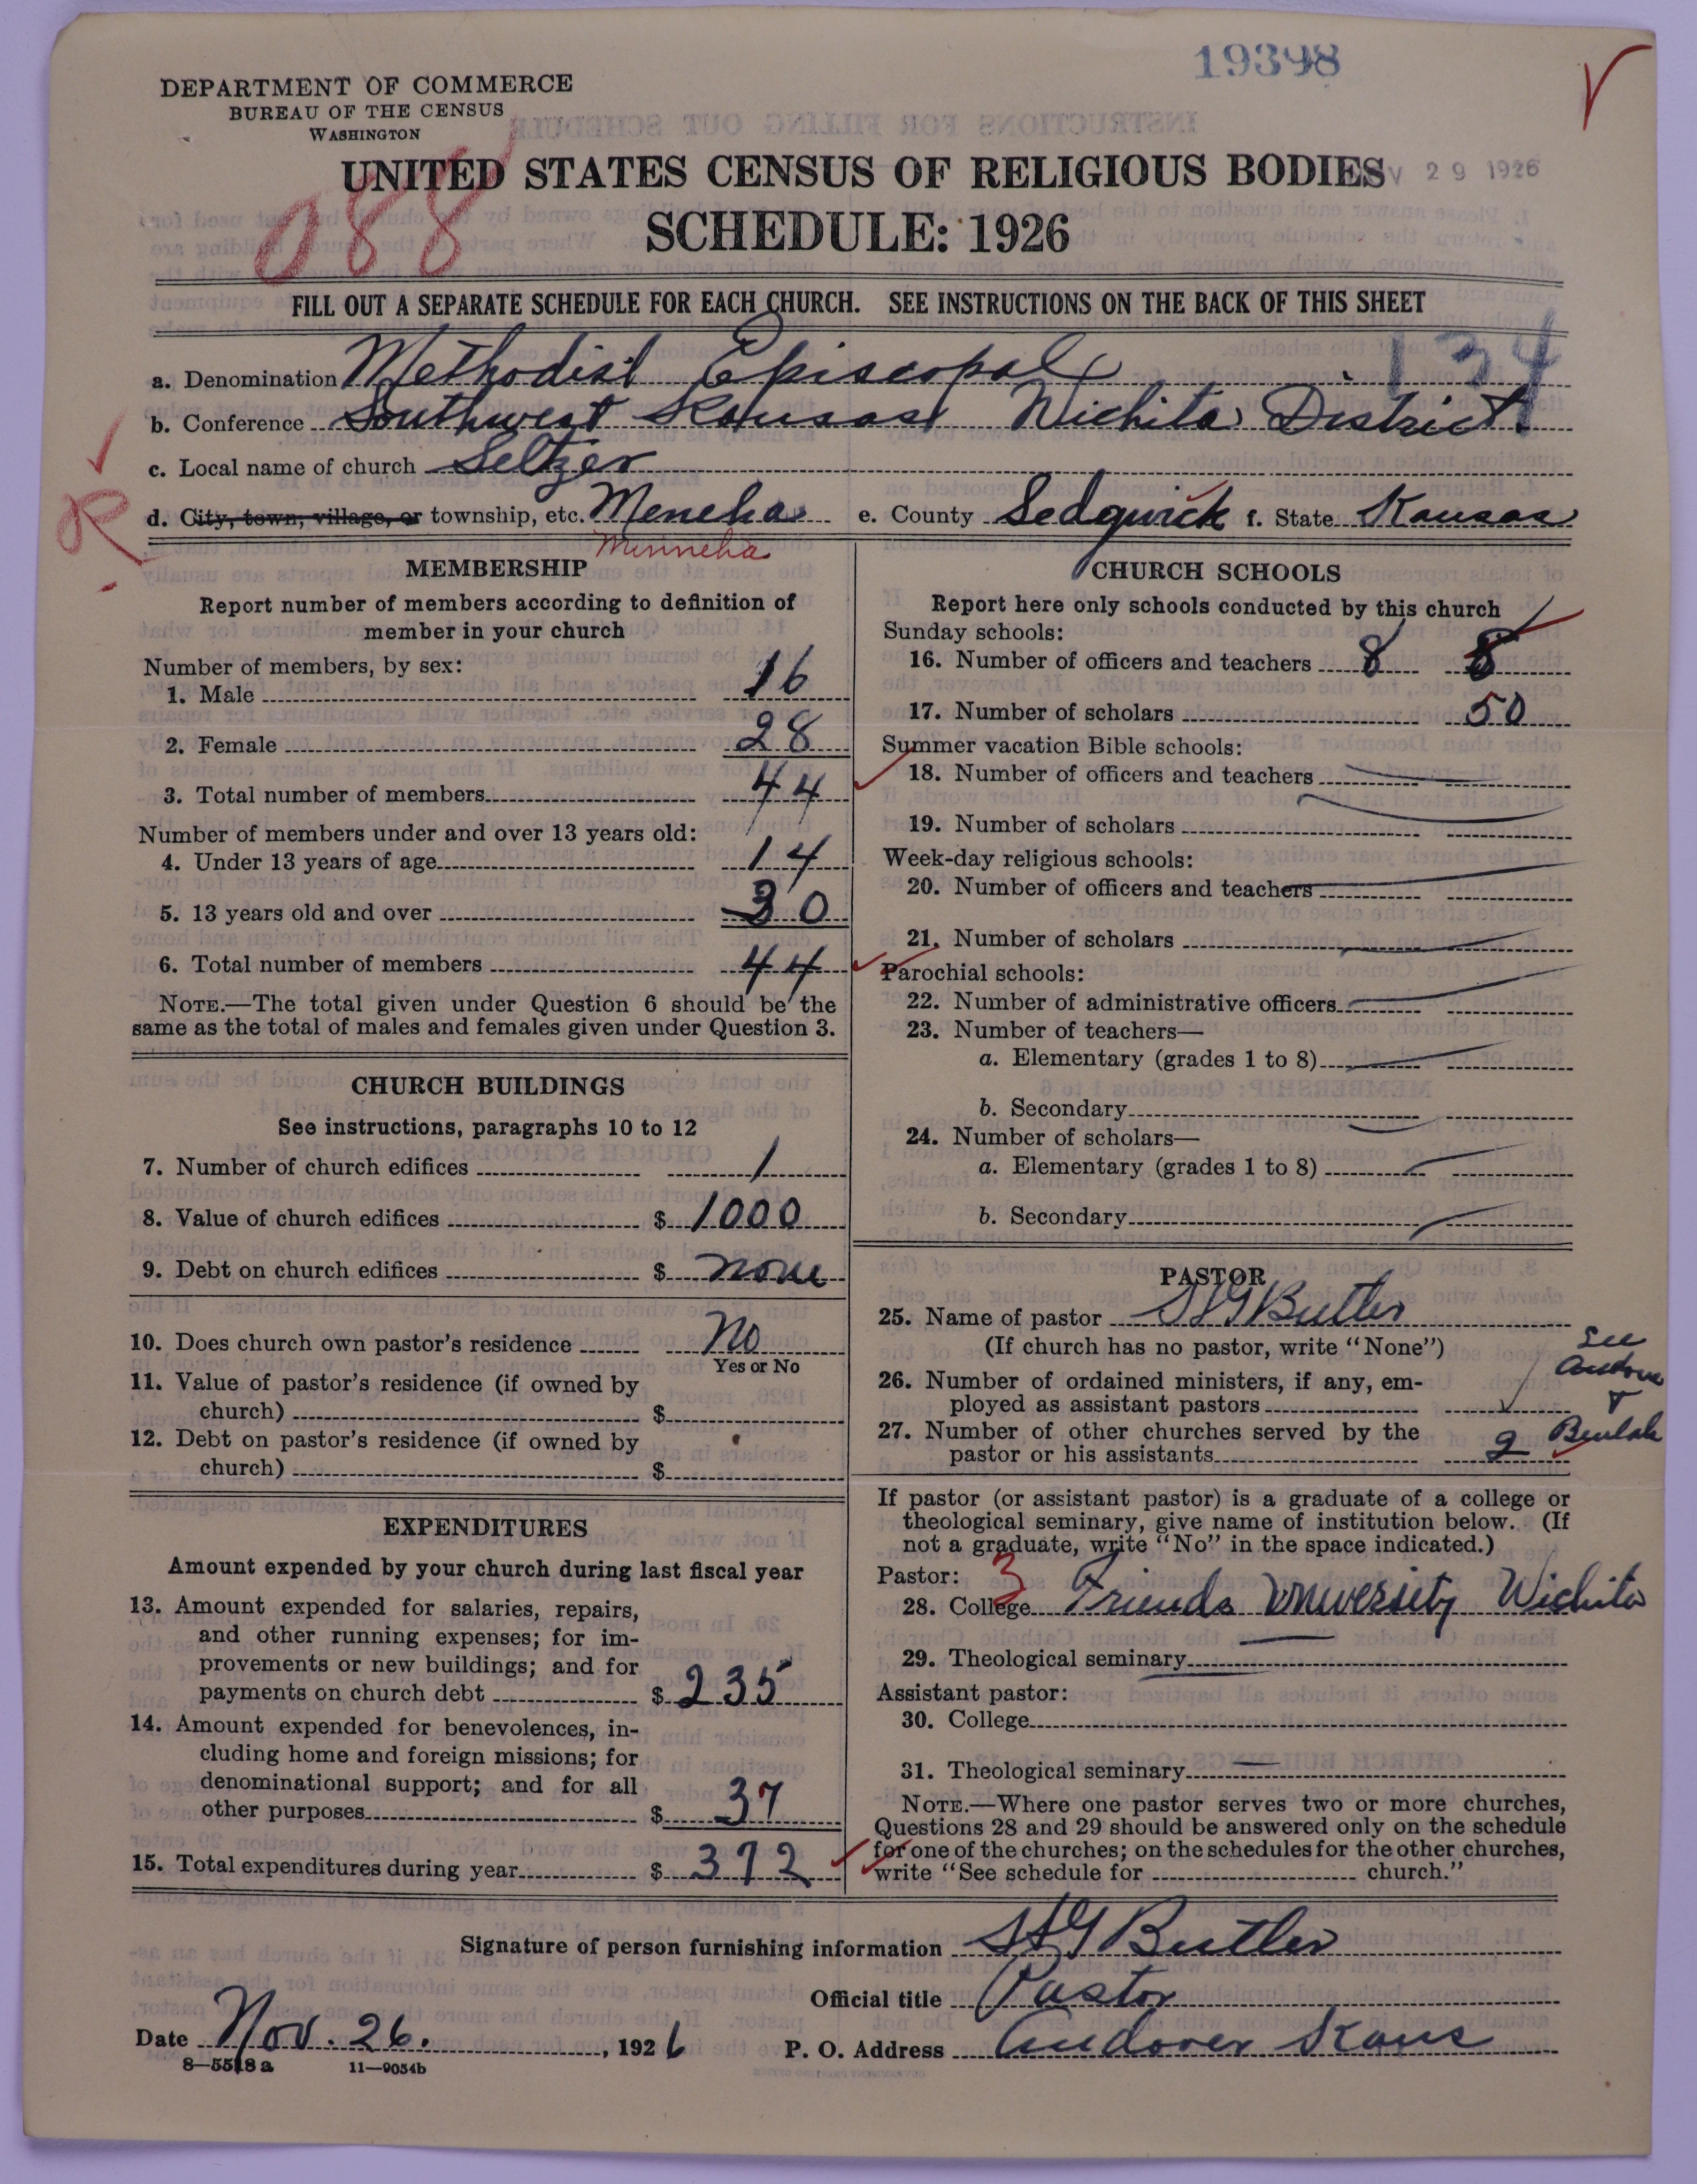 19398
DEPARTMENT OF COMMERCE
BUREAU OF THE CENSUS
WASHINGTON
UNITED STATES CENSUS OF RELIGIOUS BODIES
V 29 1926
SCHEDULE: 1926
088
FILL OUT A SEPARATE SCHEDULE FOR EACH CHURCH. SEE INSTRUCTIONS ON THE BACK OF THIS SHEET
134
a. Denomination Methodist Episcopal
b. Conference Southwest Kansas Wichita District
c. Local name of church Seltzer
R
d. City, town, village, or township, etc. Meneha e. County Sedgwick f. State Kansas
Minneha
MEMBERSHIP
Report number of members according to definition of
member in your church
Number of members, by sex:
1. Male 16
2. Female 28
3. Total number of members 44
Number of members under and over 13 years old:
4. Under 13 years of age 14
5. 13 years old and over 30
6. Total number of members 44
NOTE.—The total given under Question 6 should be the
same as the total of males and females given under Question 3.
CHURCH BUILDINGS
See instructions, paragraphs 10 to 12
7. Number of church edifices 1
8. Value of church edifices $ 1000
9. Debt on church edifices $ none
10. Does church own pastor's residence No
Yes or No
11. Value of pastor's residence (if owned by
church) $
12. Debt on pastor's residence (if owned by
church) $
EXPENDITURES
Amount expended by your church during last fiscal year
13. Amount expended for salaries, repairs,
and other running expenses; for im-
provements or new buildings; and for
payments on church debt $ 235
14. Amount expended for benevolences, in-
cluding home and foreign missions; for
denominational support; and for all
other purposes $ 37
15. Total expenditures during year $ 372
CHURCH SCHOOLS
Report here only schools conducted by this church
Sunday schools:
16. Number of officers and teachers 8 8
17. Number of scholars 50
Summer vacation Bible schools:
18. Number of officers and teachers
19. Number of scholars
Week-day religious schools:
20. Number of officers and teachers
21. Number of scholars
Parochial schools:
22. Number of administrative officers
23. Number of teachers—
a. Elementary (grades 1 to 8)
b. Secondary
24. Number of scholars—
a. Elementary (grades 1 to 8)
b. Secondary
PASTOR
25. Name of pastor S G Butler
(If church has no pastor, write "None")
See
Andover
&
Beulah
26. Number of ordained ministers, if any, em-
ployed as assistant pastors
27. Number of other churches served by the
pastor or his assistants 2
If pastor (or assistant pastor) is a graduate of a college or
theological seminary, give name of institution below. (If
not a graduate, write "No" in the space indicated.)
Pastor: 3
28. College Friends University Wichita
29. Theological seminary
Assistant pastor:
30. College
31. Theological seminary
NOTE.—Where one pastor serves two or more churches,
Questions 28 and 29 should be answered only on the schedule
for one of the churches; on the schedules for the other churches,
write "See schedule for church."
Signature of person furnishing information Butler
Official title Pastor
Date Nov. 26., 1926 P. O. Address Andover Kans
8—5518a 11—9054b